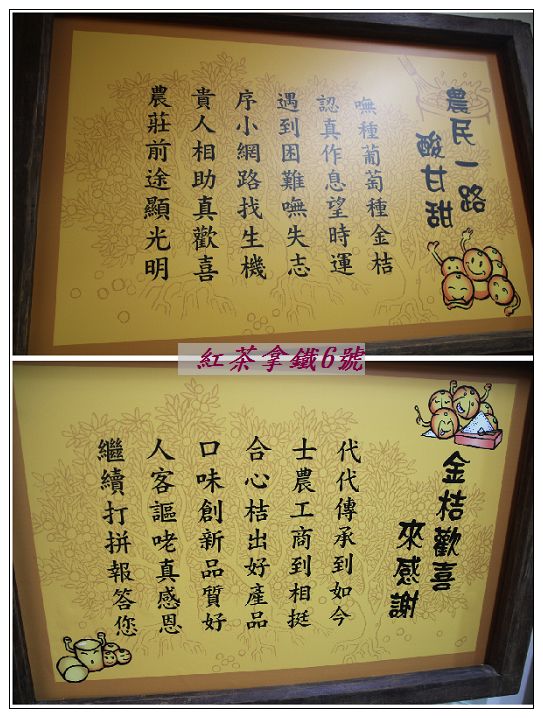 農民一路
酸甘甜
嘸種葡萄種金桔
認真作息望時運
遇到困難嘸失志
序小網路找生機
貴人相助真歡喜
農莊前途顯光明
紅茶拿鐵6號
金桔歡喜
來感謝
代代傳承到如今
士農工商到相挺
合心桔出好產品
口味創新品質好
人客謳咾真感恩
繼續打拼報答您